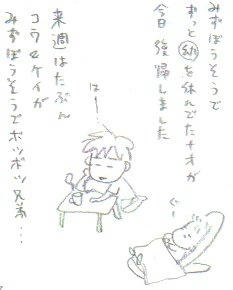 みずぼうそうで
ずっと幼を休んでたナオが
今日復帰しました
はー
ぐー
来週はたぶん
コウ&ケイが
みずぼうそうでポツポツ兄弟…